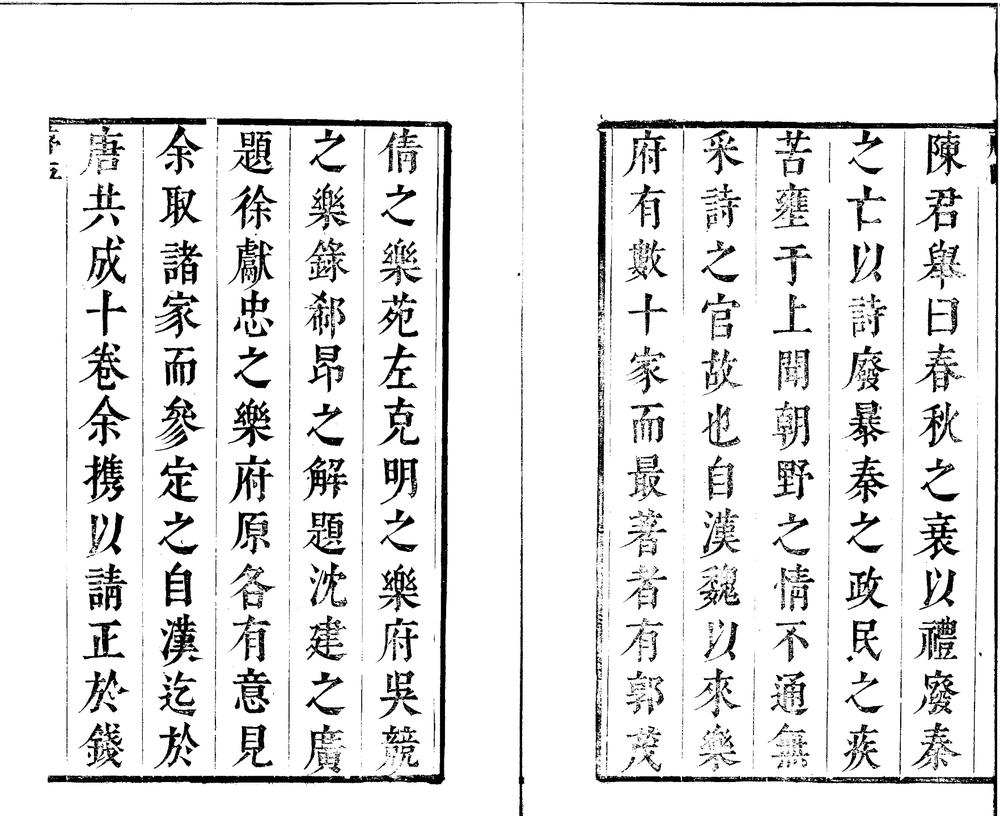 陳君舉曰春秋之衰以禮廢秦
之亡以詩廢暴秦之政民之疾
苦壅于上聞朝野之情不通無
采詩之官故也自漢魏以來樂
府有數十家而最著者有郭茂
倩之樂苑左克明之樂府吳兢
之樂錄郗昂之解題沈建之廣
題徐獻忠之樂府原各有意見
余取諸家而參定之自漢迄於
唐共成十卷余携以請正於錢